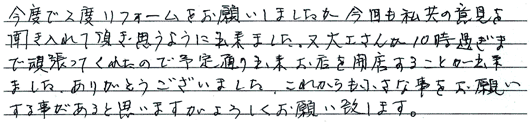 今度で2度リフォームをお願いしましたが今回も私共の意見を
聞き入れて頂き思うように出来ました。又大工さんが10時過ぎま
で頑張ってくれたので予定通り出来お店を開店することが出来
ました。ありがとうございました。これからも小さな事をお願い
する事があると思いますがよろしくお願い致します。